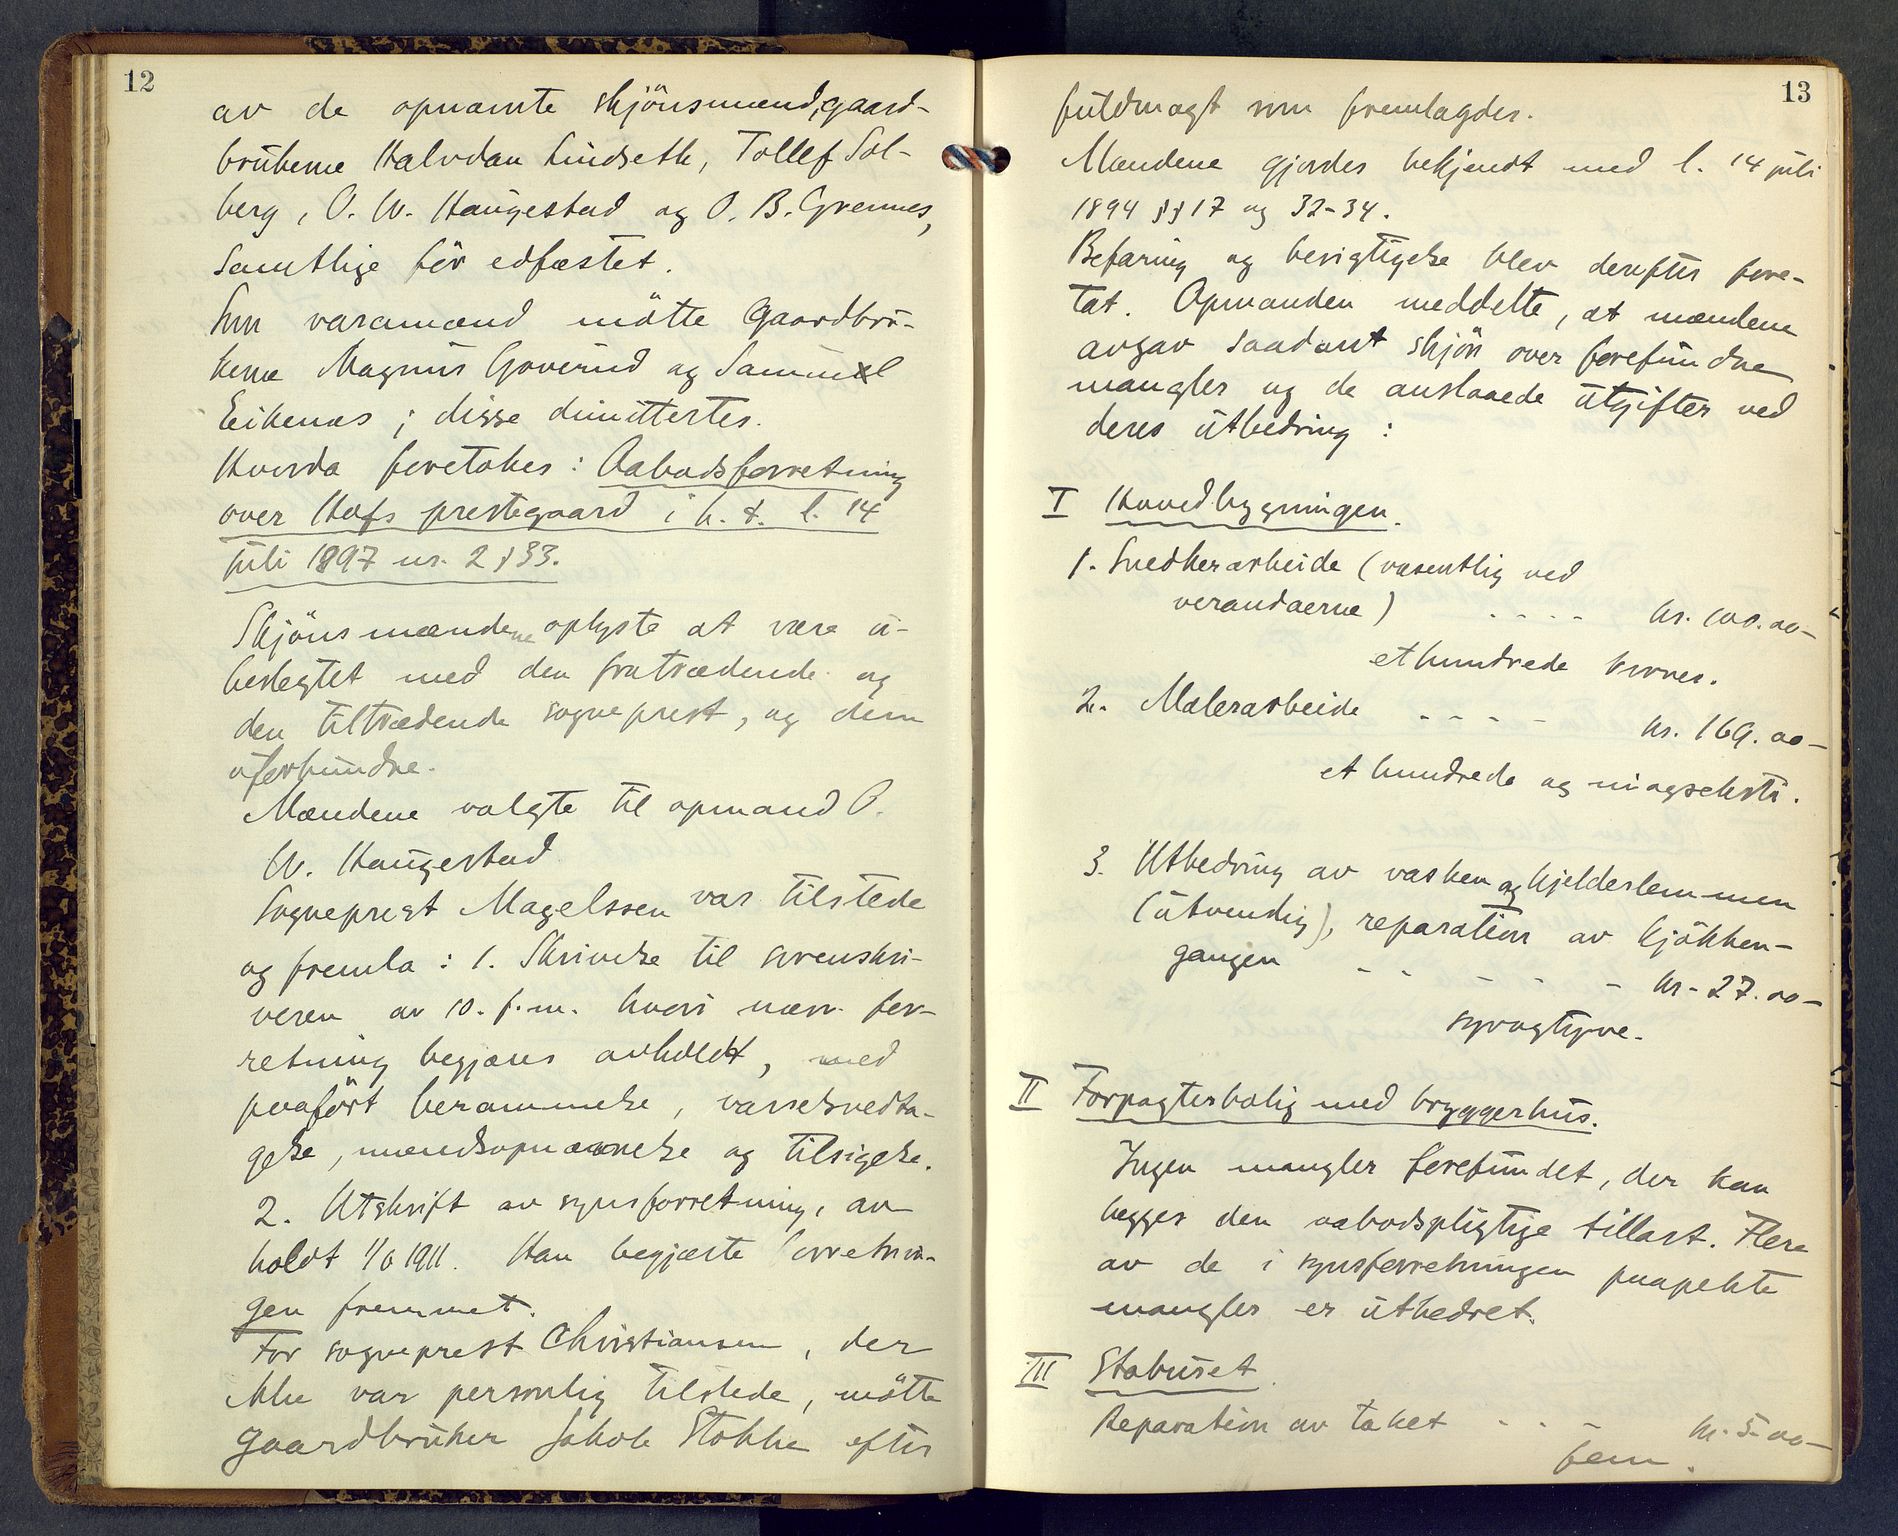 12
av de opnævnte skjönsmænd, gaard-
brukerne Halvdan Lindseth, Tollef Sol-
berg, O. W. Haugestad og O. B. Grennes,
samtlige för edfæstet.
Som varamænd mötte gaardbru-
kerne Magnus Goverud og Samuel
Eikenæs; disse dimittertes.
Hvorda foretokes: Aabodsforretning
over Hofs prestegaard i h. t. l. 14
juli 1897 nr. 2 § 33.
Skjönsmændene oplyste at være u-
beslegtet med den fratrædende og
den tiltrædende sogneprest, og dem
uforbundne.
Mændene valgte til opmand O.
W. Haugestad
Sogneprest Magelssen var tilstede
og fremla: 1. Skrivelse til sorenskri-
veren av 10. f. m. hvori nærv. for-
retning begjæres avholdt, med
paaført berammelse, varselsvedta-
gelse, mændsopnævnelse og tilsigelse.
2. Utskrift av synsforretning, av
holdt 1/6 1911. Han begjærte forretnin-
gen fremmet.
For sogneprest Christiansen, der
ikke var personlig tilstede, mötte
gaardbruker Jakob Stokke efter
13
fuldmagt som fremlagdes.
Mændene gjordes bekjendt med l. 14 juli
1894 §§ 17 og 32-34.
Befaring og besigtigelse blev derefter fore-
tat. Opmanden meddelte, at mændene
avgav saadant skjön over forefundne
mangler og de anslaaede utgifter ved
deres utbedring:
I Hovedbygningen.
1. Snedkerarbeide (væsentlig ved
verandaerne) - - - - kr. 100.00-
ethundrede kroner.
2. Malerarbeide - - - - kr. 169.00-
et hundrede og niogseksti.
3. Utbedring av vasken og kjelderlemmen
(utvendig), reparation av kjökken-
gangen - - - - - kr. 27.00-
syvogtyve.
II Forpagterbolig med bryggerhus.
Ingen mangler forefundet, der kan
lægges den aabodspligtige tillast. Flere
av de i synsforretningen paapekte
mangler er utbedret.
III Staburet.
Reparation av taket - - - kr. 5.00-
fem.